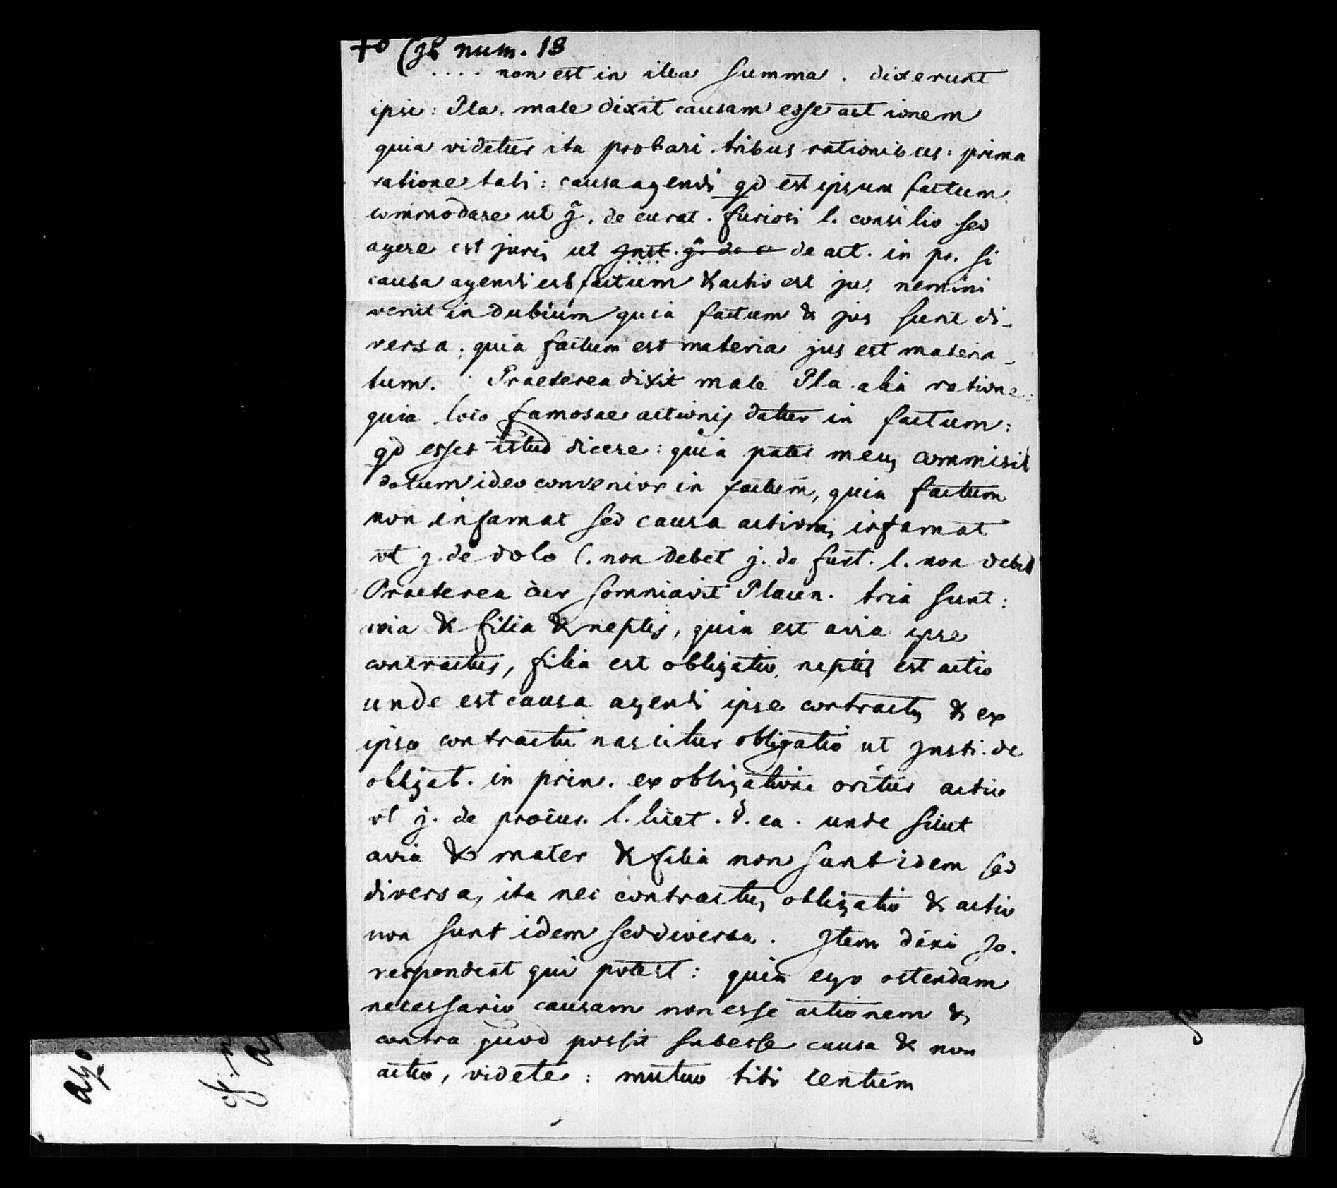 num. 18
.... non est in illa summa. dixerunt
ipsi: Pla. male dixit causam esse act ionem
quia videtur ita probari tribus rationibus: prima
ratione tali: causa agendi qd est ipsum factum
commodare ut g̃. de curat. furiosi l. consilio sed
agere est juris ut de act. in pr. si
causa agendi est factum & actio est jus nemini
venit in dubium quia factum & jus sunt di-
versa; quia factum est materia jus est materia-
tum. Praeterea dixit male Pla alia ratione:
quia loco famosae actionis datur in factum:
qd esset istud dicere: quia pater meus commisit
dolum ideo convenior in factum, quia factum
non infamat sed causa actionis infamat
ut j. de dolo l. non debet j. de fust. l. non debet
Praeterea cur somniavit Placen. tria sunt:
avia & filia & neptis, quia est avia ipse
contractus, filia est obligatio, neptis est actio
unde est causa agendi ipse contractus & ex
ipso contractu nascitur obligatio ut Insti. de
obligat. in prin. ex obligatione oritur actio
ut j. de procur. l. licet. §. ea. unde sicut
avia & mater & filia non sunt idem sed
diversa, ita nec contractus obligatio & actio
non sunt idem sed diversa. Item dixi Jo.
respondeat qui potest: quia ego ostendam
necessario causam non esse actionem &
contra quod possit subesse causa & non
actio, videte: mutuo tibi centum